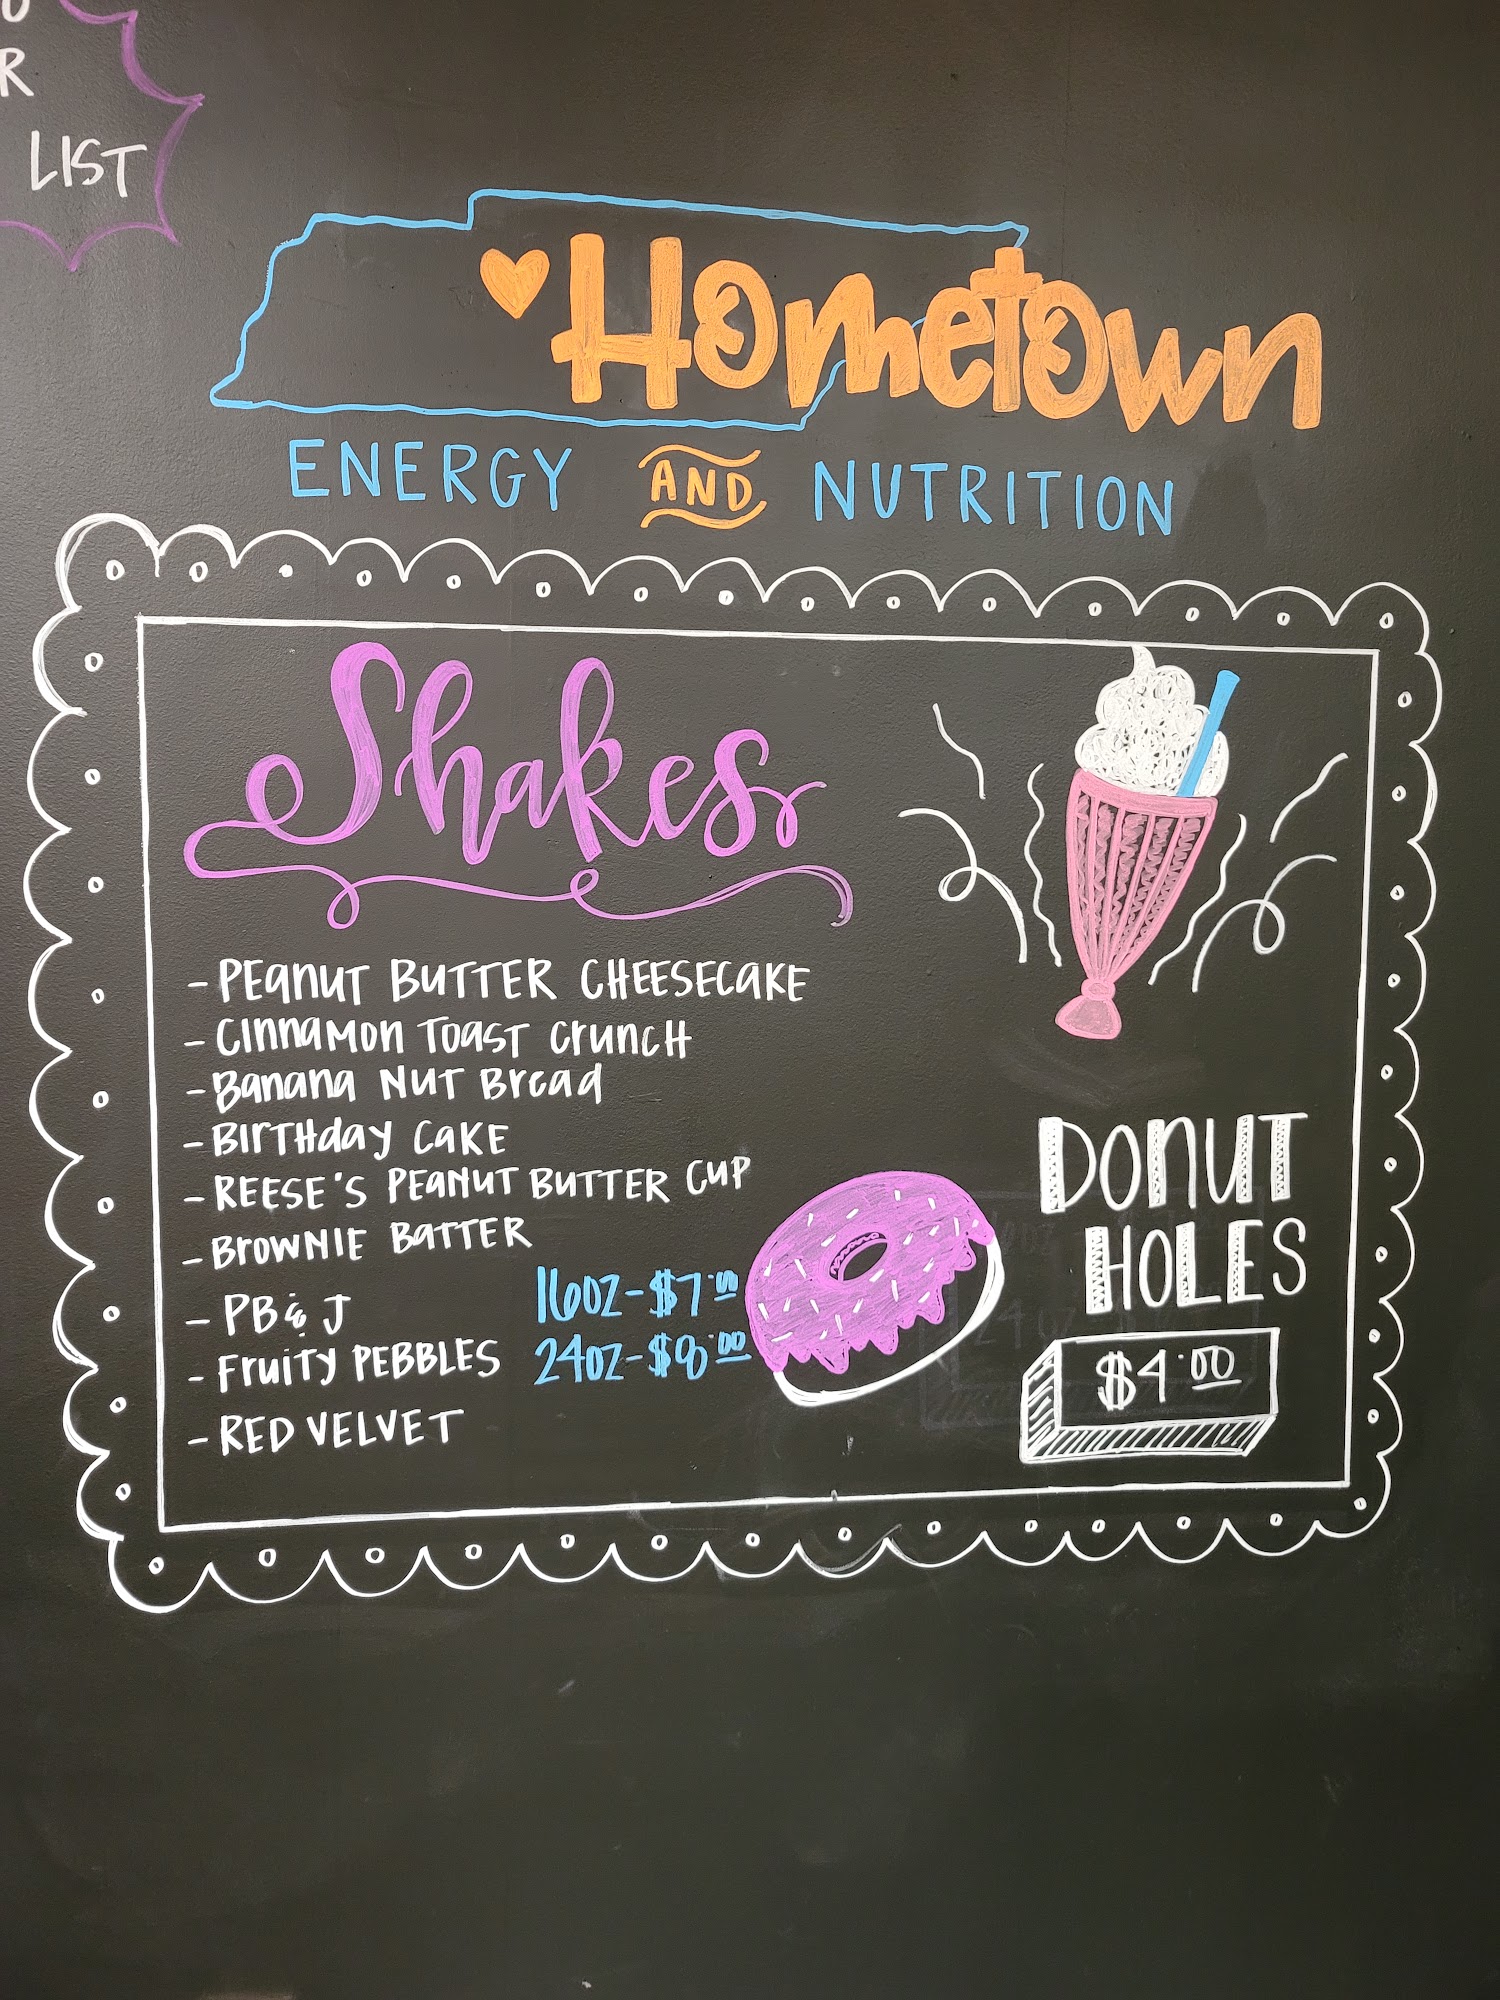 R
LIST
Hometown
ENERGY AND NUTRITION
Shakes
- PEANUT BUTTER CHEESECAKE
- CINNAMON TOAST CRUNCH
- BANANA NUT BREAD
- BIRTHDAY CAKE
- REESE'S PEANUT BUTTER CUP
- BROWNIE BATTER
- PB & J
- FRUITY PEBBLES
- RED VELVET
16OZ - $7.00
24OZ - $8.00
DONUT
HOLES
$4.00